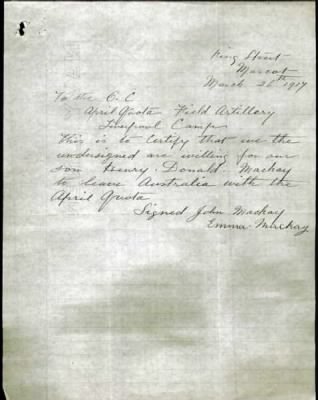 King Street
Mascot
March 26th 1917
To the O.C
April Quota Field Artillery
Liverpool Camp
This is to Certify that we the
undersigned are willing for our
Son Henry. Donald. Mackay
to leave Australia with the
April Quota
Signed John Mackay
Emma Mackay